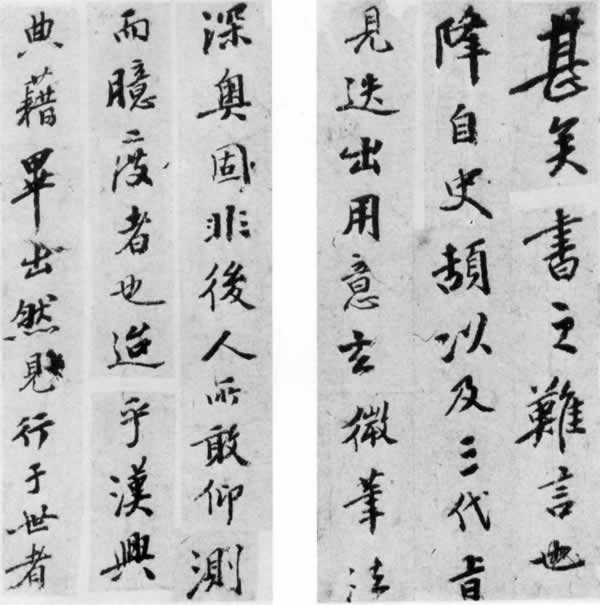 甚矣書之難言也
降自史頡以及三代旨
見迭出用意玄微筆法
深奧固非後人所敢仰測
而臆度者也迨乎漢興
典藉畢出然見行于世者